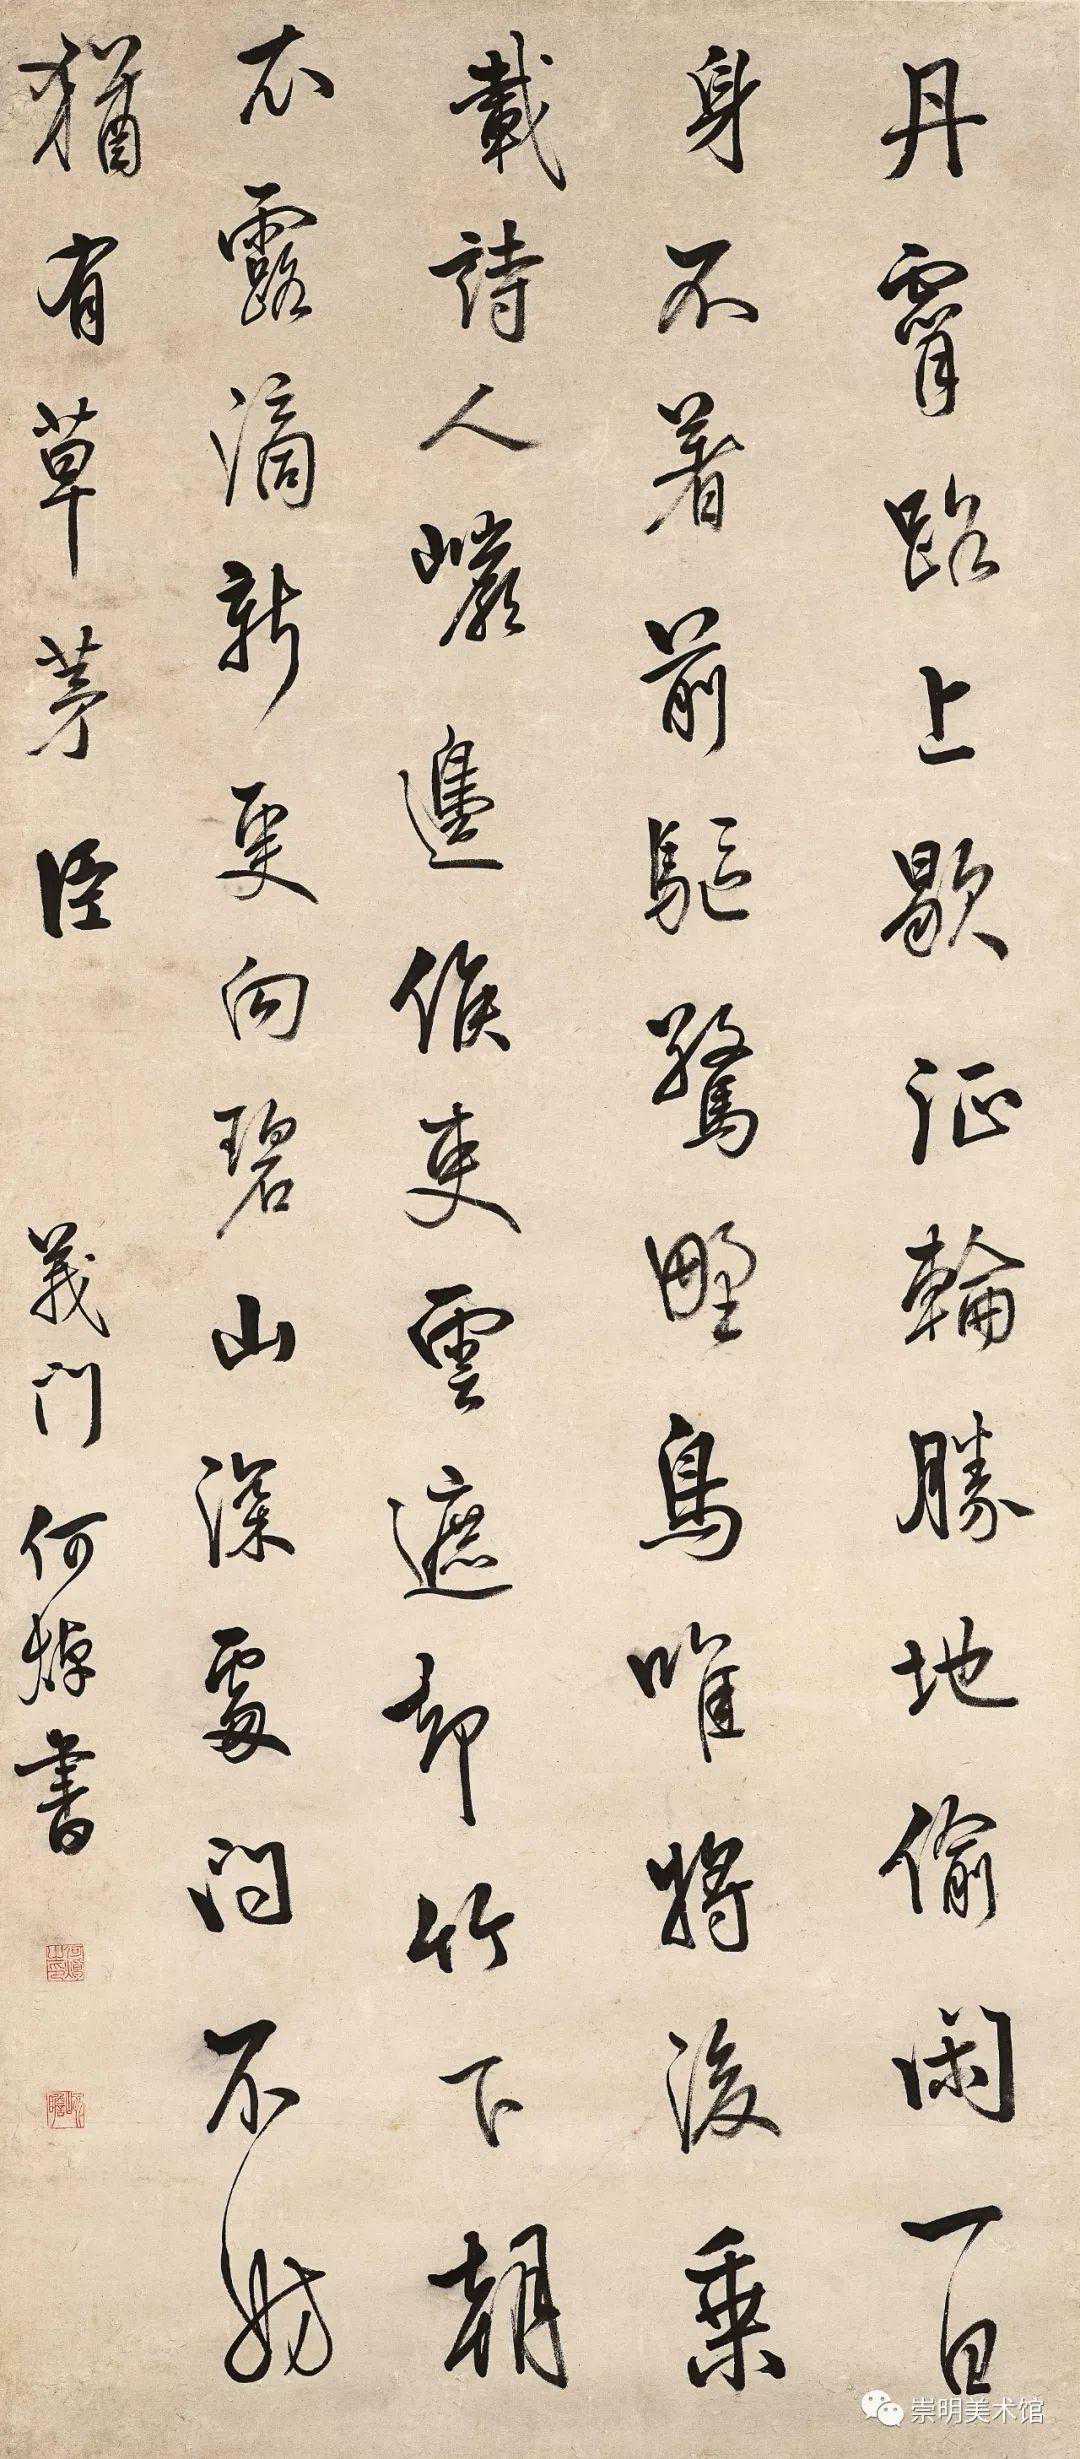 丹霄路上歇征輪勝地偷閑一日
身不著前驅驚野鳥唯將後乘
載詩人巖邊候吏雲遮却竹下朝
衣露滴新更向碧山深處問不妨
猶有草茅臣
義門何焯書
崇明美术馆